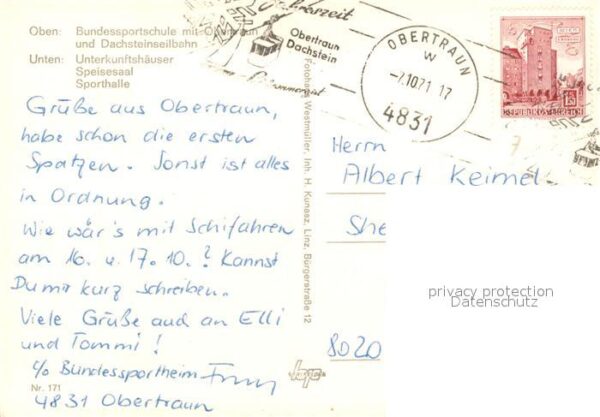 Oben: Bundessportschule mit Obertraun
und Dachsteinseilbahn
Unten: Unterkunftshäuser
Speisesaal
Sporthalle
Grüße aus Obertraun,
habe schon die ersten
Spatzen. Sonst ist alles
in Ordnung.
Wie wär's mit Schifahren
am 16. u. 17. 10.? Kannst
Du mir kurz schreiben.
Viele Grüße auch an Elli
und Tommi!
c/o Bundessportheim
4831 Obertraun
Nr. 171
Fotohaus Westmüller, Inh. H. Kunasz, Linz, Bürgerstraße 12
Obertraun
Dachstein
OBERTRAUN
w
-7.10.71 17
4831
REPUBLIK ÖSTERREICH
Herrn
Albert Keimel
8020
privacy protection
Datenschutz